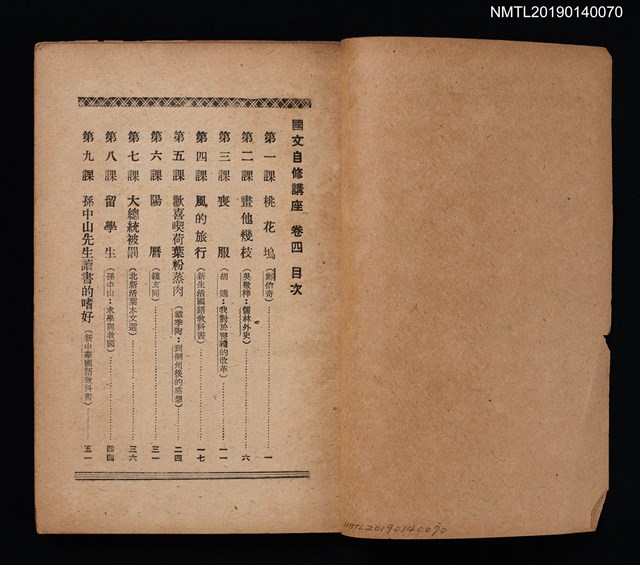 NMTL20190140070
國文自修講座 卷四 目次
第一課 桃花塢(鄭信奇)……一
第二課 畫他幾枝(吳敬梓：儒林外史)……六
第三課 喪服(胡適：我對於喪禮的改革)……一一
第四課 風的旅行(新生活國語教科書)……一七
第五課 歡喜喫荷葉粉蒸肉(戴季陶：到湖州後的感想)……二四
第六課 陽曆(錢玄同)……三一
第七課 大總統被罰(北新活葉本文選)……三六
第八課 留學生(孫中山：求學與救國)……四四
第九課 孫中山先生讀書的嗜好(新中華國語教科書)……五一
NMTL20190140070